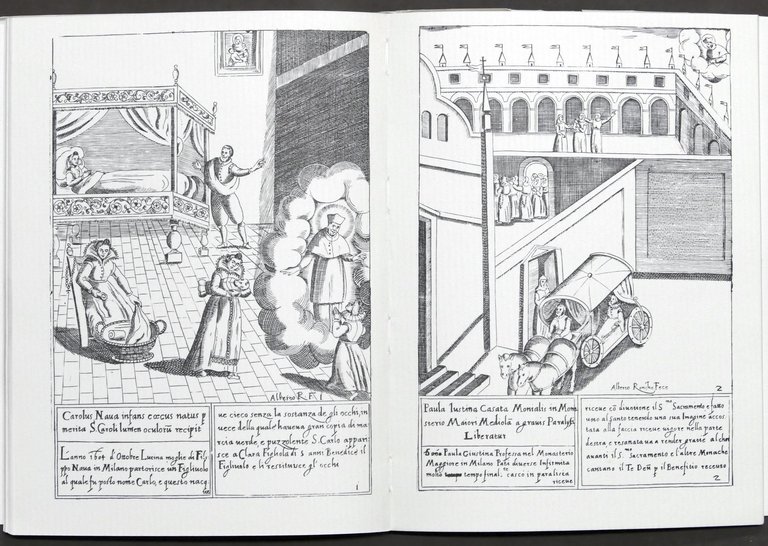 Alberio R F. 1
Carolus Naua infans cœcus natus
merita S. Caroli lumen oculorū recipit
L'anno 1604 d'Ottobre Lucina moglie di Filip
po Naua in Milano partorisce un Figliuolo
al quale fu posto nome Carlo, e questo nacq
ue cieco senza la sostanza de gli occhi, in
uece della quale haueua gran copia di mar
cia uerde e puzzolente S. Carlo apparisce
a Clara Figliola di 5 anni Benedice il
Figliuolo e li restituisce gli occhi
1
Alberio Roncho Fece 2
Paula Iustina Casata Monialis in Mon
sterio Maiori Mediolā a graui Paralysi
Liberatur
Paula Giustina Professa nel Monasterio
Maggiore in Milano Patì diuerse Infirmità
tempo casco in paralisia
riceue
riceue cō diuotione il S.mo Sacramento e fatto
uoto al Santo tenendo una sua Imagine accos
tata alla faccia riceue uigore nella parte
destra e resanata ua a render gratie al choro
auanti il S.mo Sacramento e l'altre Monache
cantano il Te Deū p il Benefitio receuto
2